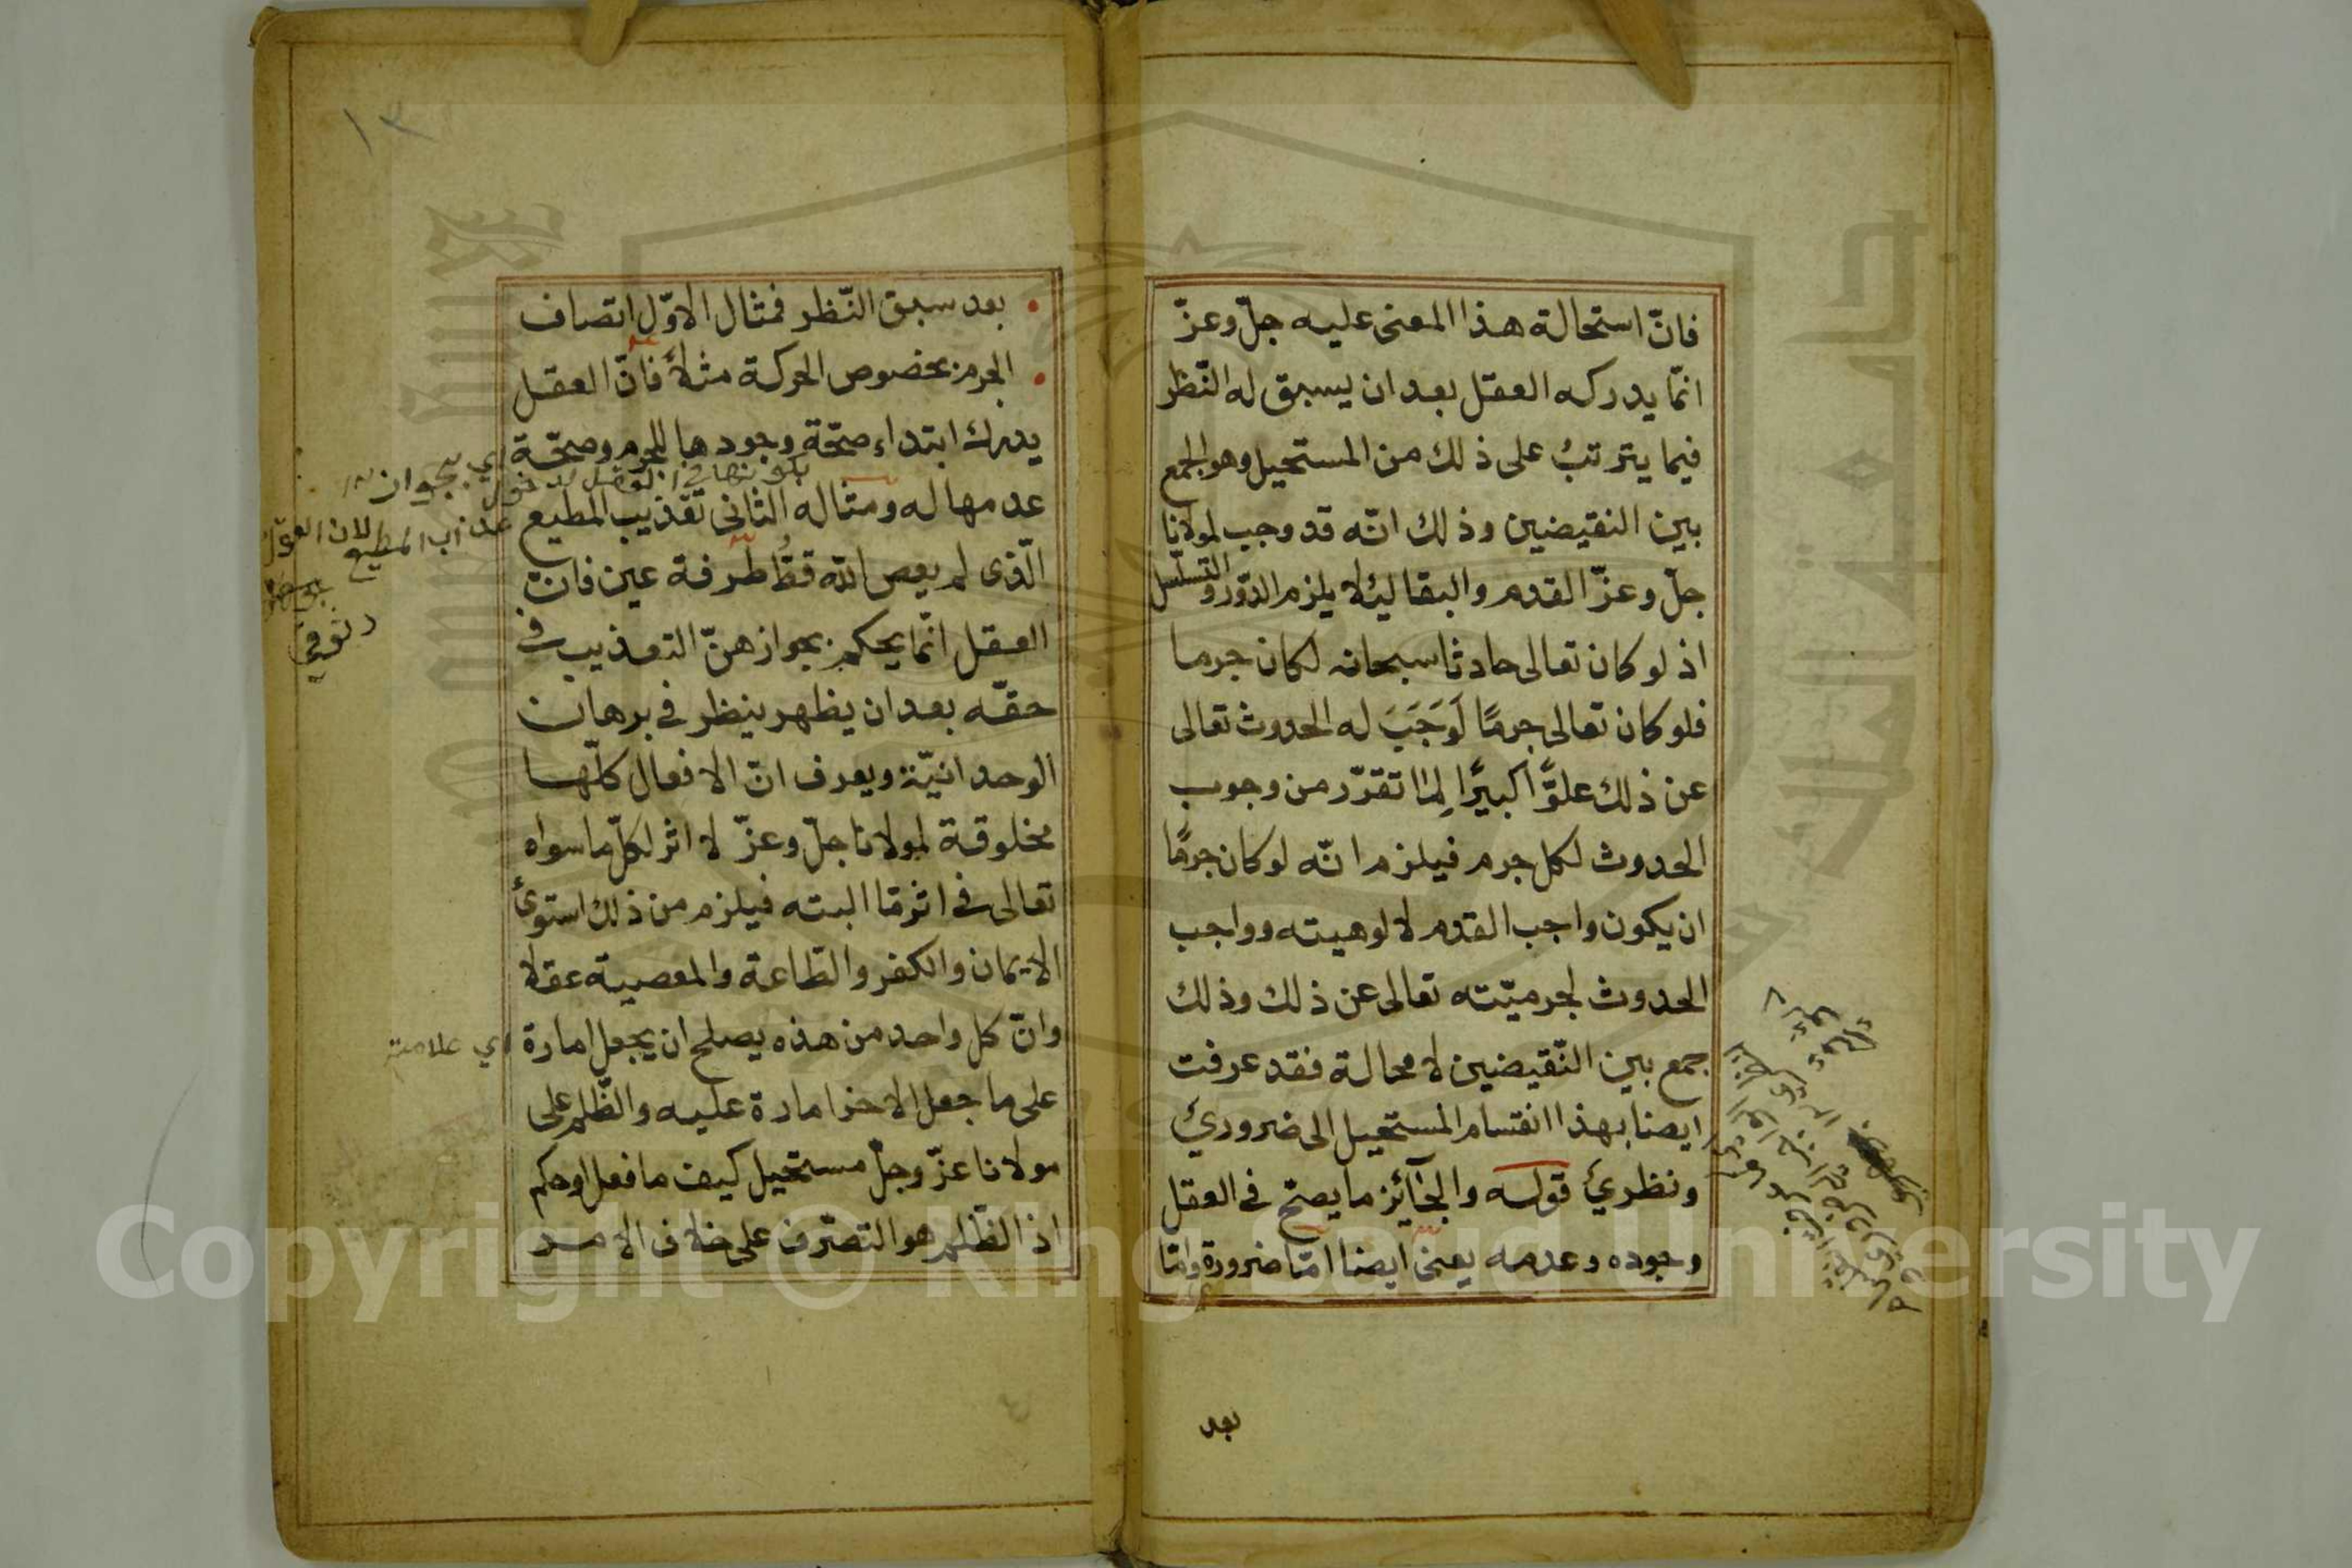 فانّ استحالة هذا المعنى عليه جلّ وعزّ
انّما يدركه العقل بعد ان يسبق له النّظر
فيما يترتبُ على ذلك من المستحيل وهو الجمع
بين النقيضين وذلك انّه قد وجب لمولانا
جلّ وعزّ القدم والبقا لئلا يلزم الدّور والتسلسل
اذ لو كان تعالى حادثا سبحانه لكان جرما
فلو كان تعالى جرمًا لَوَجَبَ له الحدوث تعالى
عن ذلك علوًّا كبيرًا لِما تقرّر من وجوب
الحدوث لكل جرم فيلزم انّه لو كان جرمًا
ان يكون واجب القدم لالوهيته وواجب
الحدوث لجرميّته تعالى عن ذلك وذلك
جمع بين النّقيضين لا محالة فقد عرفت
ايضا بهذا انقسام المستحيل الى ضروريّ
ونظريّ قوله والجائز ما يصحّ فى العقل
وجوده وعدمه يعنى ايضا امّا ضرورة وامّا
بعد
١٣
بعد سبق النّظر فمثال الاوّل اتصاف
الجرم بخصوص الحركة مثلاً فانّ العقل
يدرك ابتداء صحّة وجودها للجرم وصحّة
عدمها له ومثاله الثانى تعذيب المطيع
الّذى لم يعص اللّه قطُّ طرفة عين فانّ
العقل انّما يحكم بجواز هنّ التعذيب فى
حقّه بعد ان يظهر ينظر فى برهان
الوحدانيّة ويعرف انّ الافعال كلّها
مخلوقة لمولانا جلّ وعزّ لا اثر لكلّ ما سواه
تعالى فى اثرمّا البته فيلزم من ذلك استوئ
الايمان والكفر والطاعة والمعصية عقلا
وانّ كل واحد من هذه يصلح ان يجعل امارة
اي علامة
على ما جعل الاخر امارة عليه والظّلم على
مولانا عزّ وجلّ مستحيل كيف ما فعل او حكم
اذ الظّلم هو التصرّف على خلاف الامر
عذاب المطيع لان
Copyright © King Saud University